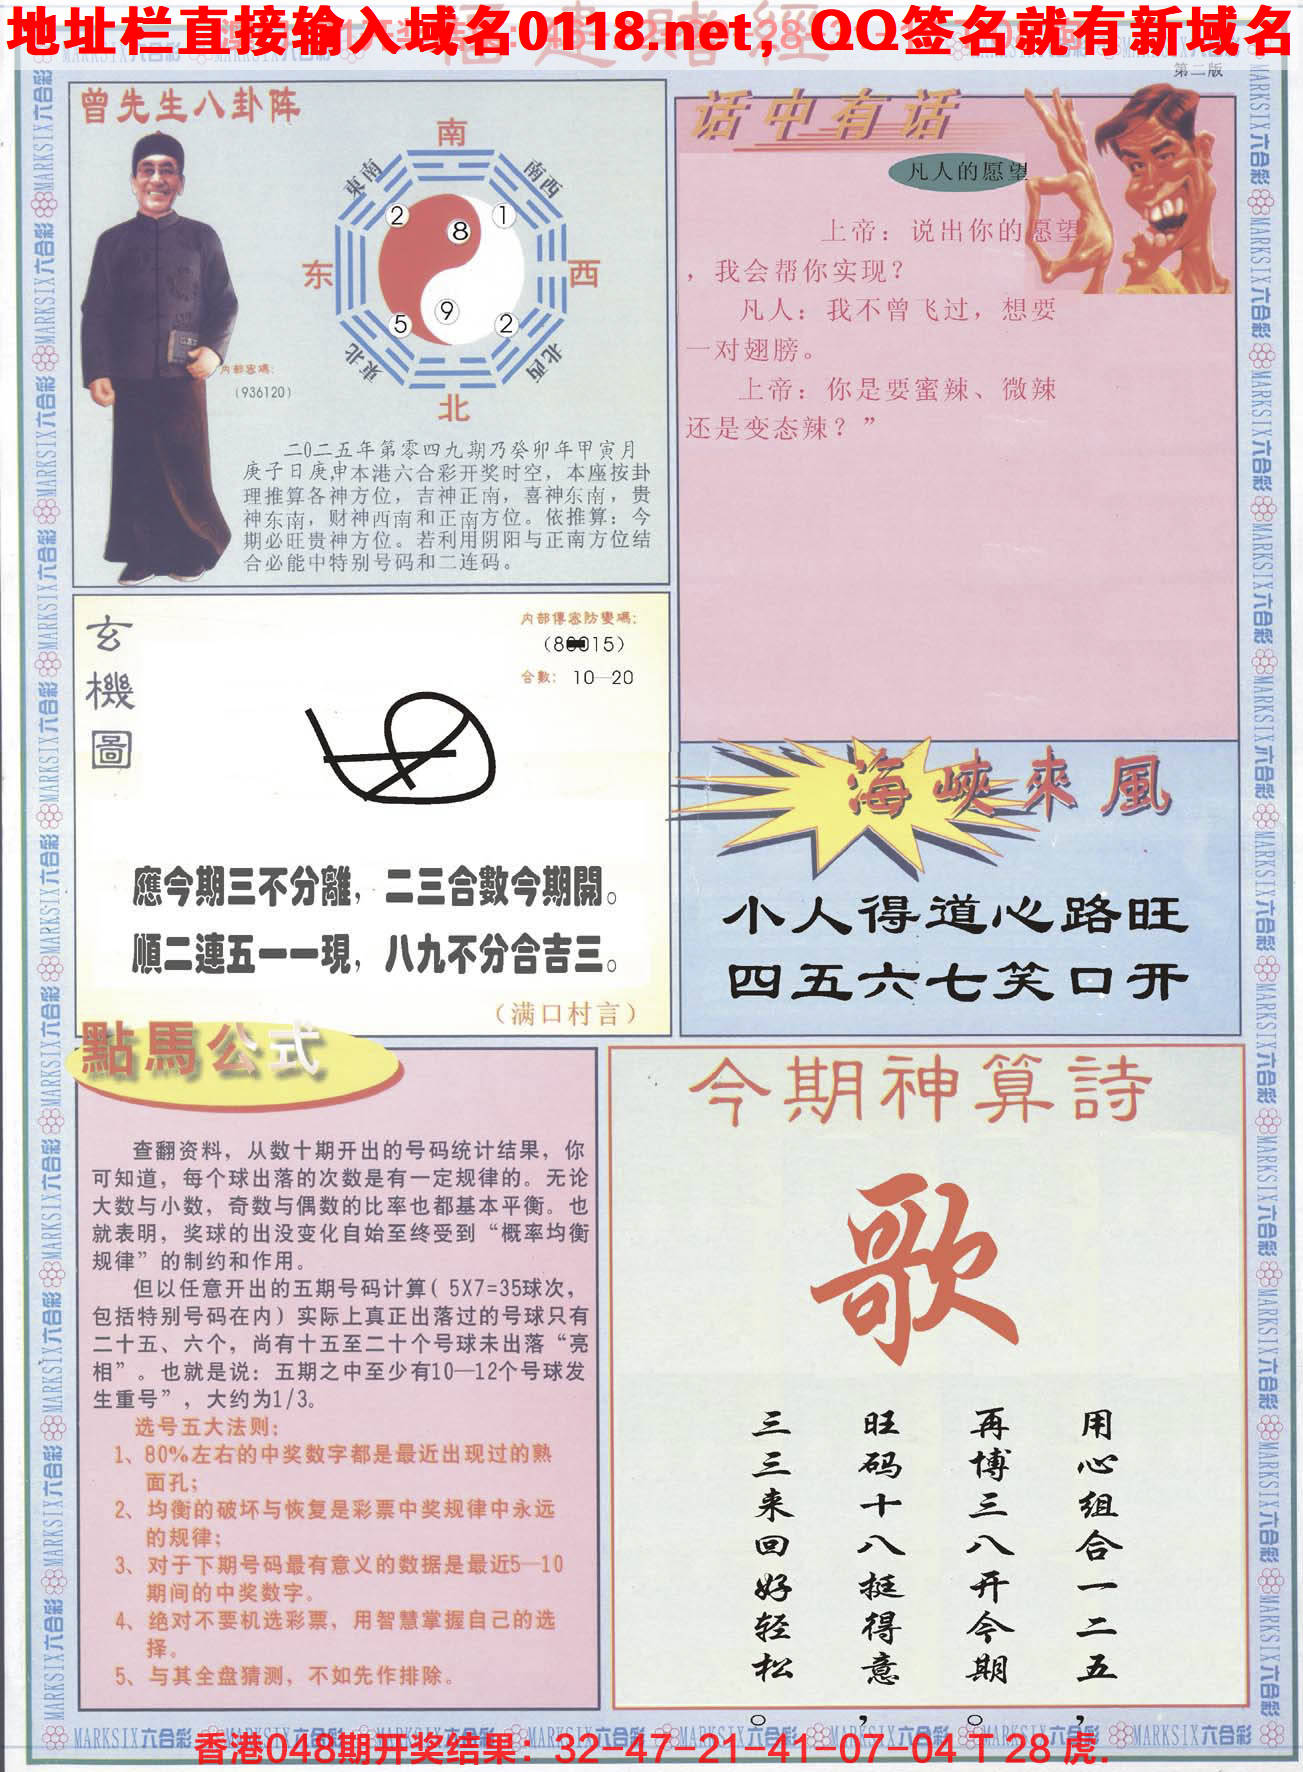 地址栏直接输入域名0118.net，QQ签名就有新域名
福建赌經
第二版
曾先生八卦阵
南
東南
南西
2
8
1
东
西
5
9
2
東北
北西
北
内部密碼：
（936120）
二0二五年第零四九期乃癸卯年甲寅月
庚子日庚申本港六合彩开奖时空，本座按卦
理推算各神方位，吉神正南，喜神东南，贵
神东南，财神西南和正南方位。依推算：今
期必旺贵神方位。若利用阴阳与正南方位结
合必能中特别号码和二连码。
话中有话
凡人的愿望
上帝：说出你的愿望
，我会帮你实现？
凡人：我不曾飞过，想要
一对翅膀。
上帝：你是要蜜辣、微辣
还是变态辣？”
玄機圖
内部傳密防變碼：
合數：10—20
應今期三不分離，二三合數今期開。
順二連五一一現，八九不分合吉三。
（满口村言）
海峽來風
小人得道心路旺
四五六七笑口开
點馬公式
查翻资料，从数十期开出的号码统计结果，你
可知道，每个球出落的次数是有一定规律的。无论
大数与小数，奇数与偶数的比率也都基本平衡。也
就表明，奖球的出没变化自始至终受到“概率均衡
规律”的制约和作用。
但以任意开出的五期号码计算（5X7=35球次，
包括特别号码在内）实际上真正出落过的号球只有
二十五、六个，尚有十五至二十个号球未出落“亮
相”。也就是说：五期之中至少有10—12个号球发
生重号”，大约为1/3。
选号五大法则：
1、80%左右的中奖数字都是最近出现过的熟
面孔；
2、均衡的破坏与恢复是彩票中奖规律中永远
的规律；
3、对于下期号码最有意义的数据是最近5—10
期间的中奖数字。
4、绝对不要机选彩票，用智慧掌握自己的选
择。
5、与其全盘猜测，不如先作排除。
今期神算詩
歌
用心组合一二五，
再博三八开今期。
旺码十八挺得意，
三三来回好轻松。
MARKSIX六合彩
香港048期开奖结果：32-47-21-41-07-04 T 28 虎.